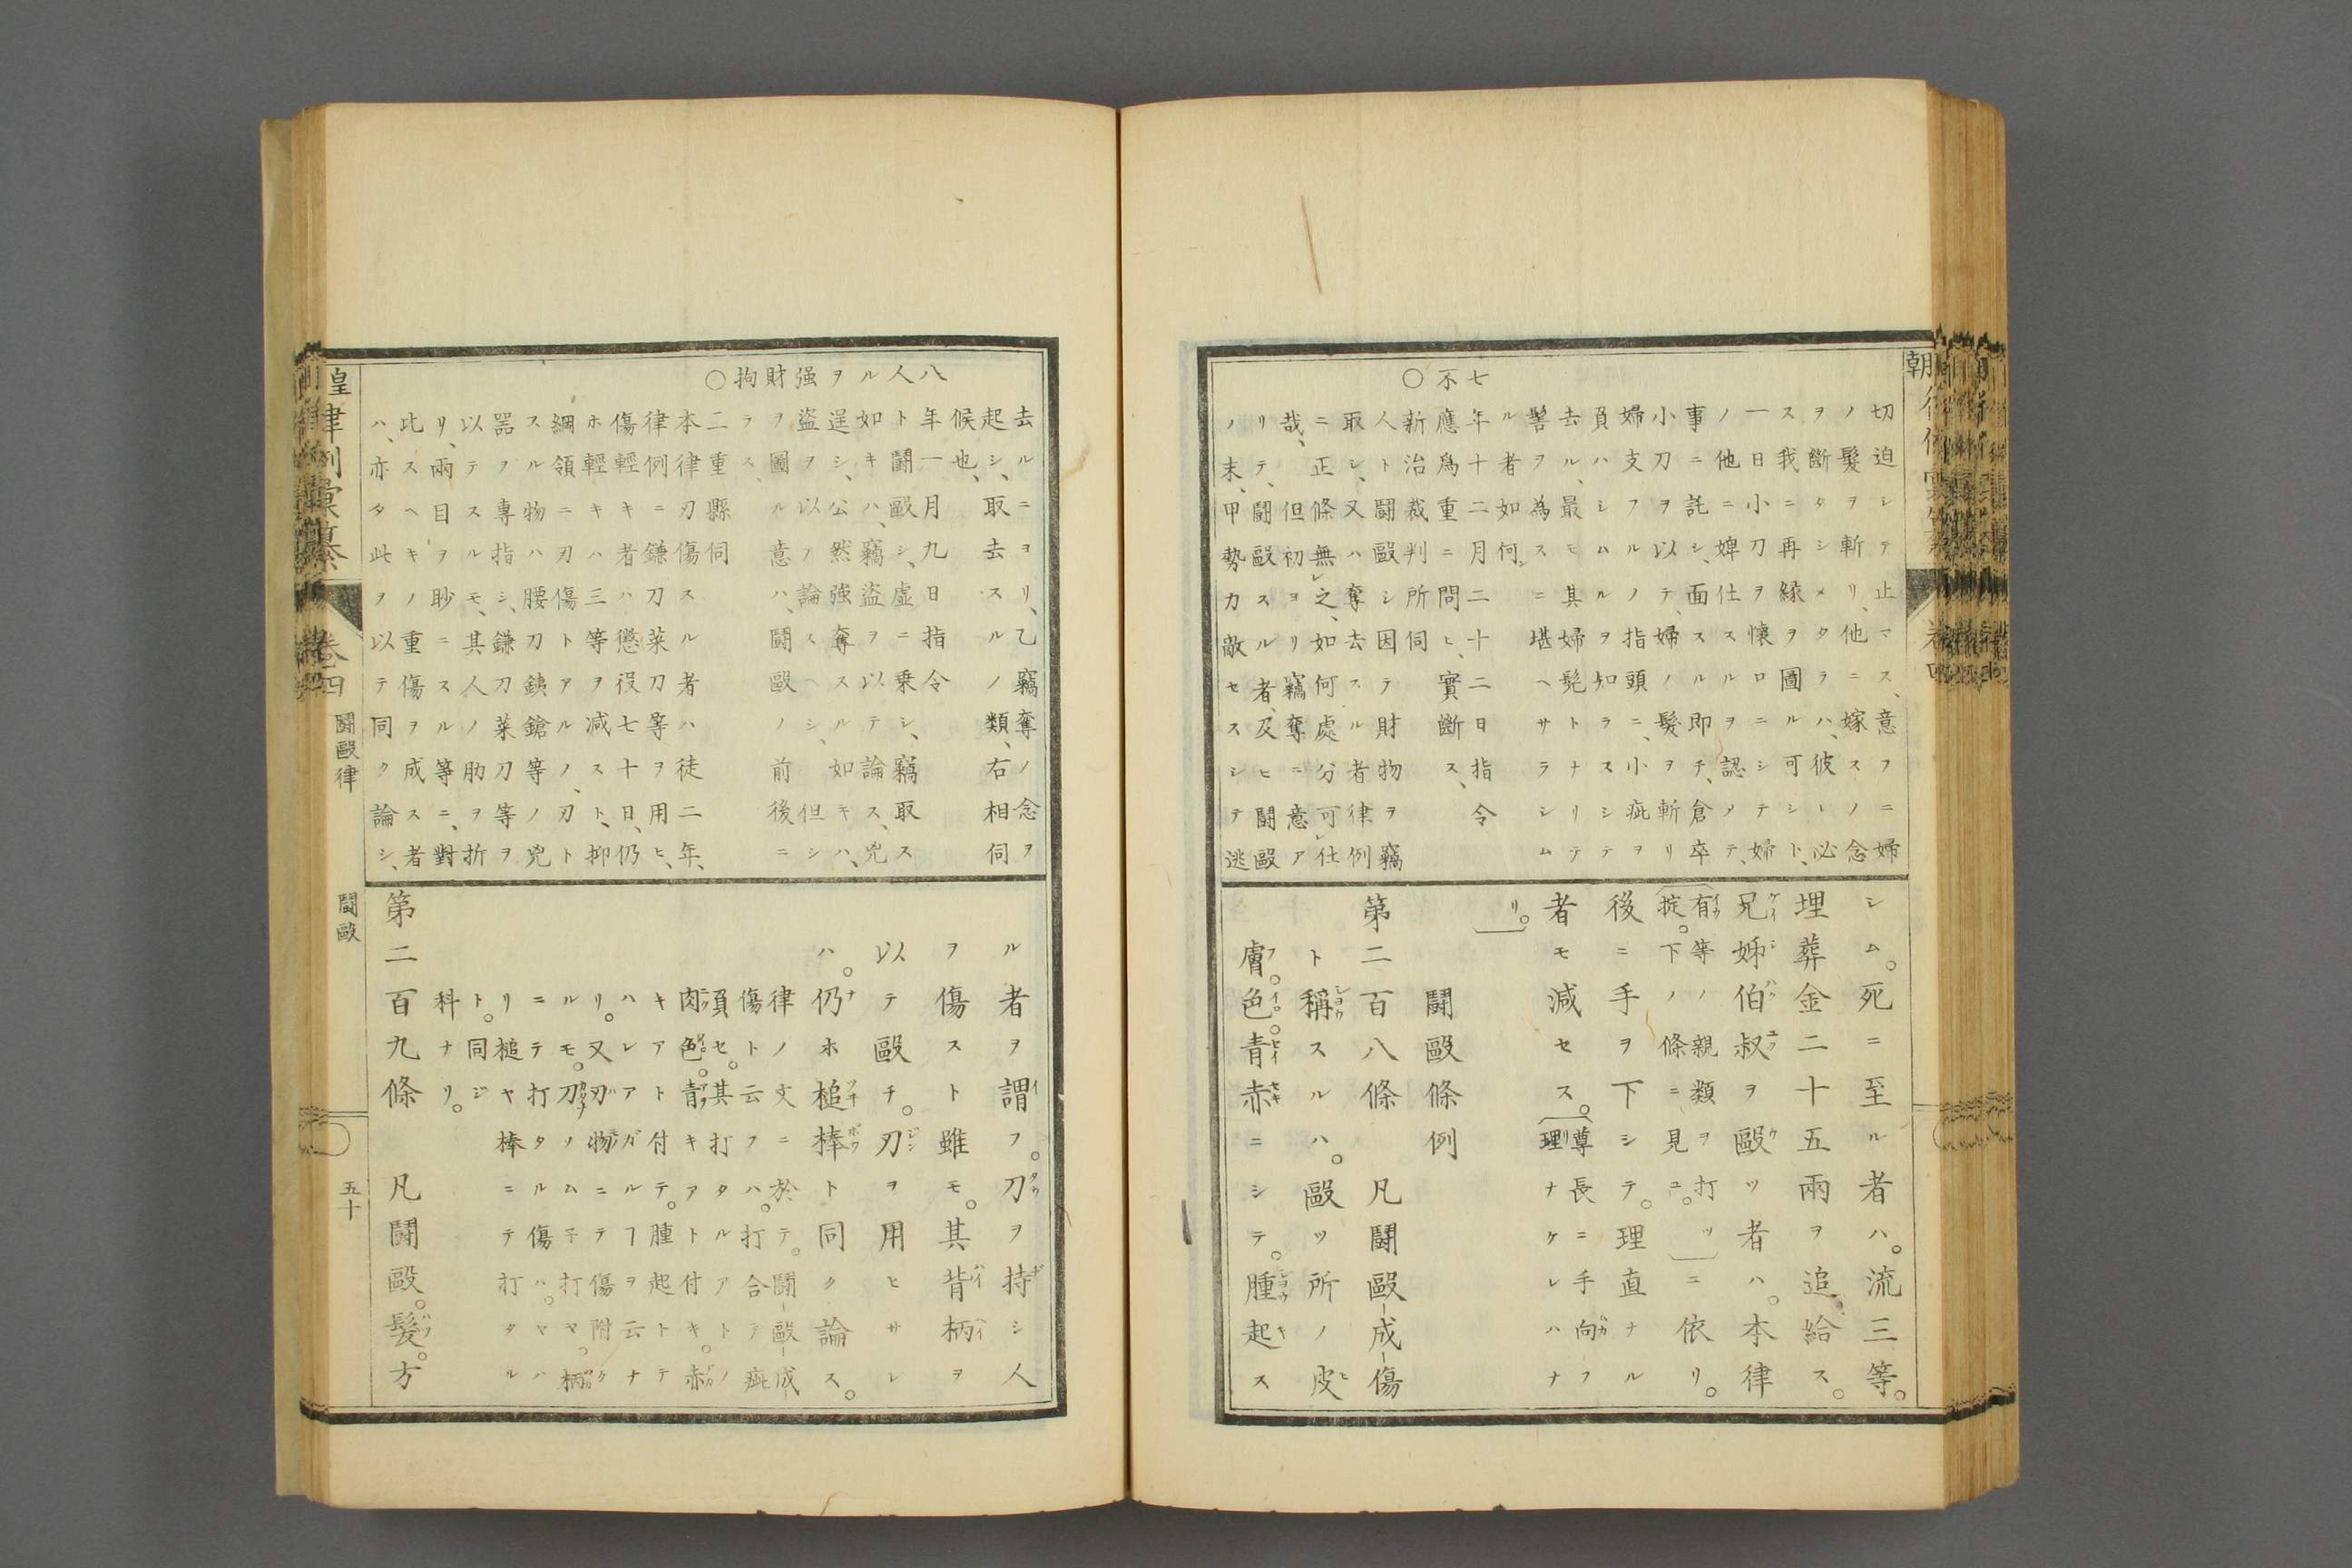 切迫シテ止マス、意フニ婦
ノ髮ヲ斬リ、他ニ嫁スノ念
ヲ斷タシメタラハ、彼レ必
ス我ニ再縁ヲ圖ル可シト、
一日小刀ヲ懷ロニシテ婦
ノ他ニ婢仕スルヲ認メテ、
事ニ託シ、面スル即チ、倉卒
小刀ヲ以テ、婦ノ髮ヲ斬リ
婦支フルノ指頭ニ、小疵ヲ
負ハシムルヲ知ラスシテ
去ル、最モ其婦髡トナリテ
髻ヲ為スニ堪ヘサラシム
ル者如何
七年十二月二十二日指令
不應爲重ニ問ヒ、實斷ス、
○新治裁判所伺
人ト鬪毆シ因テ財物ヲ竊
取シ、又ハ奪去スル者律例
ニ正條無レ之、如何處分可レ仕
哉、但初ヨリ竊奪ニ意ア
リテ、鬪毆スル者、及ヒ鬪毆
ノ末、甲勢力敵セスシテ逃
シム。死ニ至ル者ハ。流三等。
埋葬金二十五兩ヲ追給ス。
兄姊伯叔ヲ毆ツ者ハ。本律
有等ノ親類ヲ打ツ
掟。下ノ條ニ見ユ。
ニ依リ。
後ニ手ヲ下シテ。理直ナル
者モ減セス。
尊長ニ手向フ
理ナケレハナ
リ。
鬪毆條例
第二百八條 凡鬪毆成傷
ト稱スルハ。毆ツ所ノ皮
膚。色青赤ニシテ。腫起ス
去ルニヨリ、乙竊奪ノ念ヲ
起シ、取去スルノ類、右相伺
候也、
八年一月九日指令
人ト鬪毆シ、虚ニ乗シ、竊取ス
ル如キハ、竊盗ヲ以テ論ス、兇
ヲ逞シ、公然強奪スル如キハ、
强盗ヲ以ノ論スヘシ、但シ
財ヲ圖ル意ハ、鬪毆ノ前後ニ
拘ラス、
○二重縣伺
本律刃傷スル者ハ徒二年、
律例ニ鎌刀菜刀等ヲ用ヒ、
傷輕キ者ハ懲役七十日、仍
ホ輕キハ三等ヲ减スト、抑
綱領ニ刃傷トアルノ、刃ト
スル物ハ腰刀銕鎗等ノ兇
器ヲ専指シ、鎌刀菜刀等ヲ
以テスルモ、其人ノ肋ヲ折
リ、兩目ヲ眇ニスル等ニ、對
此スヘキノ重傷ヲ成ス者
ハ、亦タ此ヲ以テ同ク論シ、
ル者ヲ謂フ。刀ヲ持シ人
ヲ傷スト雖モ。其背柄ヲ
以テ毆チ。刃ヲ用ヒサレ
ハ。仍ホ槌棒ト同ク論ス。
律ノ文ニ於テ。鬪毆成
傷ト云フハ。打合テ疵
負セ。其打タルアトノ
肉色。青キアト付キ。赤
キアト付テ。腫起トテ
ハレアガルヿヲ云ナ
リ。又刃物ニテ傷附ク
ルモ。刀ノムネ打ヤ。柄
ニテ打タル傷ハ。ヤハ
リ槌ヤ棒ニテ打タル
ト。同ジ
科ナリ。
第二百九條 凡鬪毆。髮方
皇律例彙纂 卷四 鬪毆律 鬪毆 五十